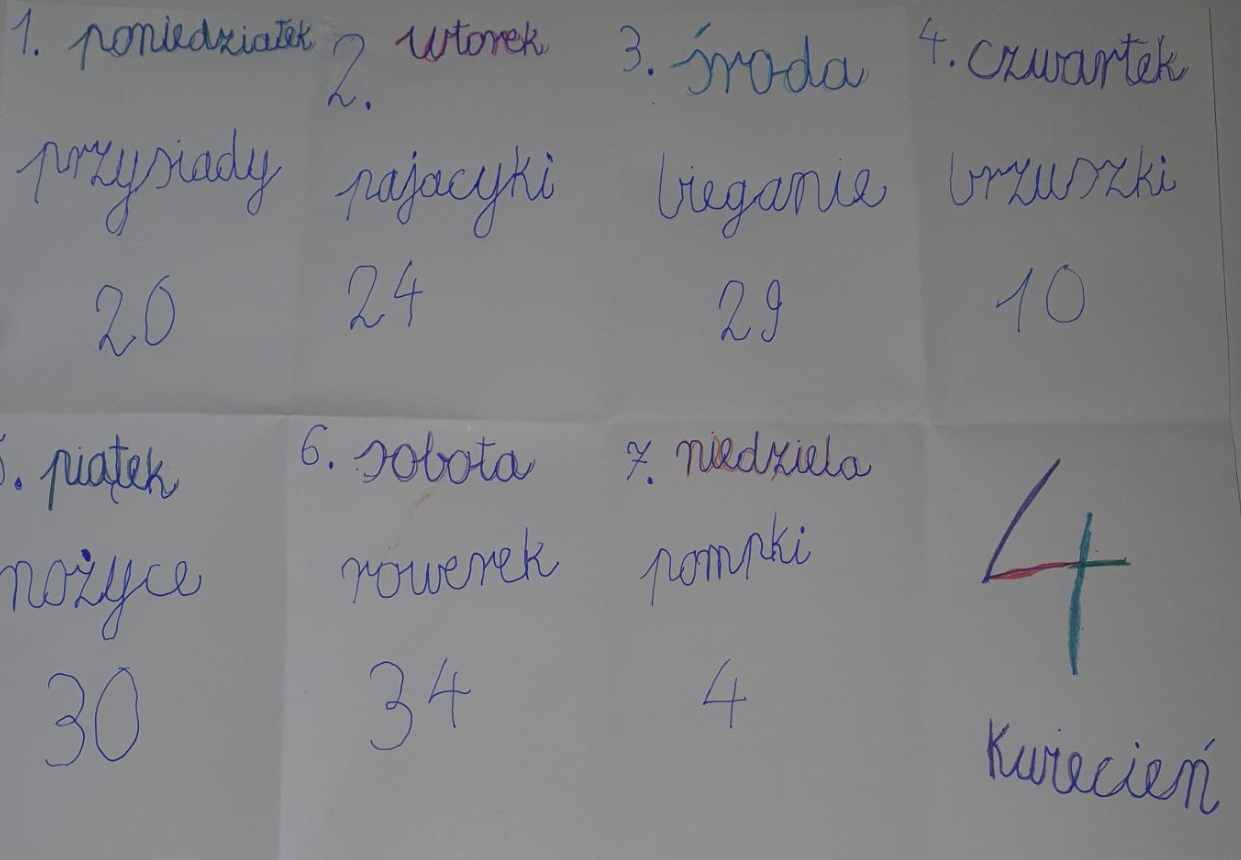 1. poniedziałek
przysiady
20
2. wtorek
pajacyki
24
3. środa
bieganie
29
4. czwartek
brzuszki
10
5. piątek
nożyce
30
6. sobota
rowerek
34
7. niedziela
pompki
4
4
Kwiecień